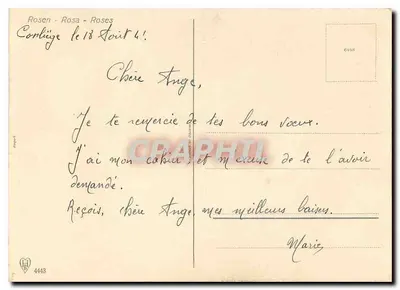 Rosen - Rosa - Roses
le 18 Août 41
Chère Ange,
Je te remercie de tes bons vœux.
J'ai mon cahier et m'excuse de te l'avoir
demandé.
Reçois, chère Ange, mes meilleurs baisers.
Marie
4443